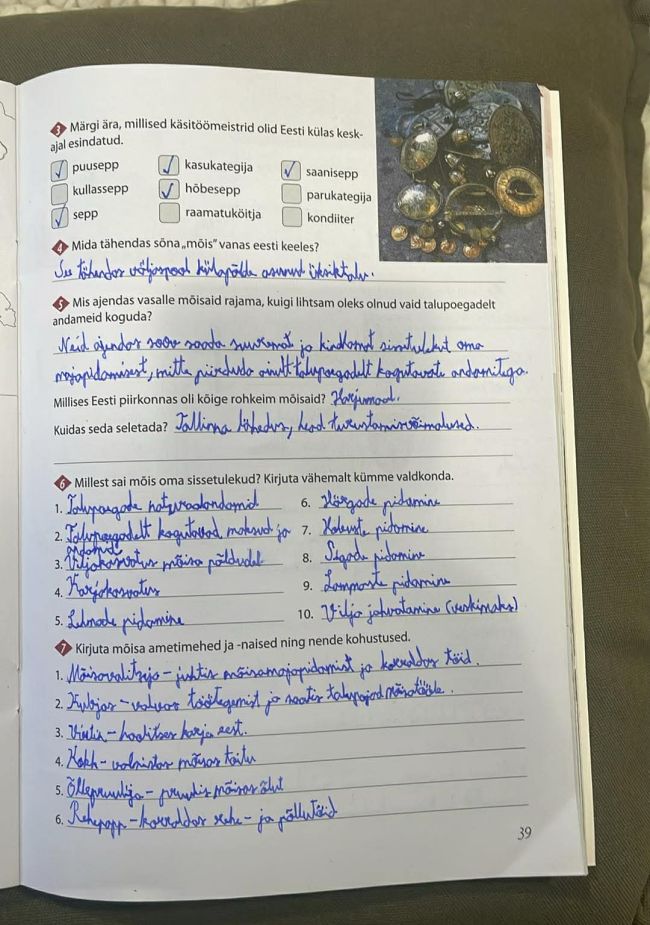 3 Märgi ära, millised käsitöömeistrid olid Eesti külas kesk-
ajal esindatud.
puusepp kasukategija saanisepp
kullassepp hõbesepp parukategija
sepp raamatuköitja kondiiter
4 Mida tähendas sõna „mõis” vanas eesti keeles?
See tähendas väljaspool külapõlde asunud üksiktalu.
5 Mis ajendas vasalle mõisaid rajama, kuigi lihtsam oleks olnud vaid talupoegadelt
andameid koguda?
Neid ajendas soov saada suuremat ja kindlamat sissetulekut oma
majapidamisest, mitte piirduda ainult talupoegadelt kogutavate andamitega.
Millises Eesti piirkonnas oli kõige rohkeim mõisaid? Harjumaal.
Kuidas seda seletada? Tallinna lähedus, head turustamisvõimalused.
6 Millest sai mõis oma sissetulekud? Kirjuta vähemalt kümme valdkonda.
1. Talupoegade naturaalandamid
2. Talupoegadelt kogutavad maksud ja
andamid
3. Viljakasvatus mõisa põldudel
4. Karjakasvatus
5. Lehmade pidamine
6. Härgade pidamine
7. Hobuste pidamine
8. Sigade pidamine
9. Lammaste pidamine
10. Vilja jahvatamine (veskimaks)
7 Kirjuta mõisa ametimehed ja -naised ning nende kohustused.
1. Mõisavalitseja - juhtis mõisamajapidamist ja korraldas töid.
2. Kubjas - valvas töötegemist ja saatis talupojad mõisatööle.
3. - hoolitses karja eest.
4. Kokk - valmistas mõisas toitu
5. Õllepruulija - pruulis mõisas õlut
6. Rehepapp - korraldas rehe - ja põllutöid
39